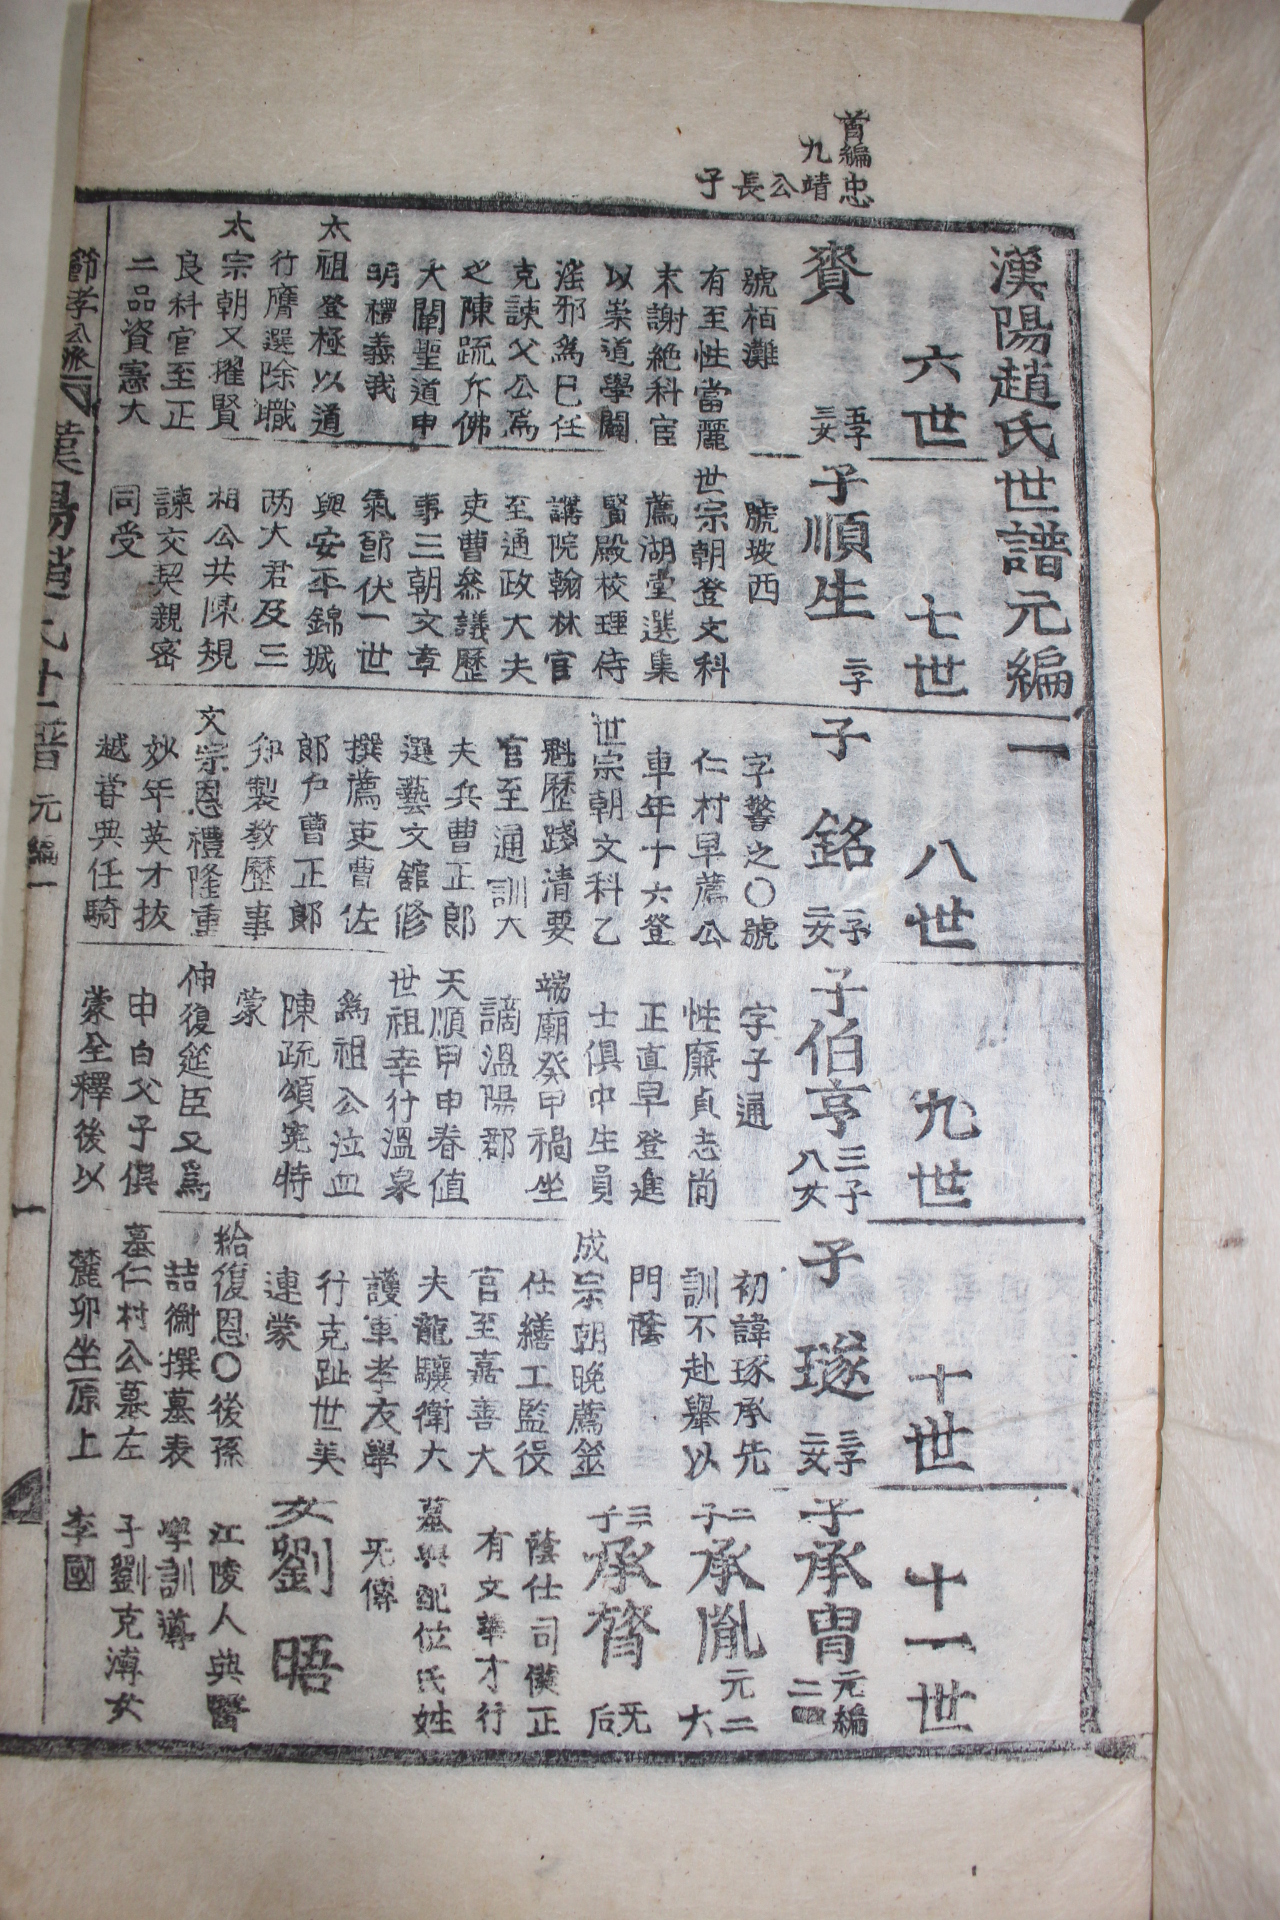 首編忠
九靖
公
長
子
漢陽趙氏世譜元編一
六世
賚
五子
三女
號栢灘
有至性當麗
末謝絶科宦
以崇道學闢
滛邪爲已任
克諫父公爲
之陳疏斥佛
大闡聖道申
明禮義我
太祖登極以道
行膺選除職
太宗朝又擢賢
良科官至正
二品資憲大
七世
子順生
二子
號坡西
世宗朝登文科
薦湖堂選集
賢殿校理侍
講院翰林官
至通政大夫
吏曹叅議歷
事三朝文章
氣節伏一世
與安平錦城
两大君及三
相公共陳規
諫交契親密
同受
八世
子銘
二子
二女
字警之〇號
仁村早薦公
車年十六登
世宗朝文科乙
魁歷踐清要
官至通訓大
夫兵曹正郎
選藝文舘修
撰薦吏曹佐
郎户曹正郎
知製敎歷事
文宗恩禮隆重
妙年英才抜
越甞典任騎
九世
子伯亨
三子
八女
字子通
性廉貞志尚
正直早登進
士俱中生員
端廟癸甲禍坐
謫溫陽郡
天順甲申春値
世祖幸行溫泉
爲祖公泣血
陳疏頌寃特
蒙
伸復筵臣又爲
申白父子俱
蒙全釋後以
十世
子璲
三子
二女
初諱琢承先
訓不赴舉以
門蔭
成宗朝晚薦筮
仕繕工監役
官至嘉善大
夫龍驤衛大
護軍孝友學
行克趾世美
連蒙
給復恩〇後孫
喆衡撰墓表
墓仁村公墓左
麓卯坐原上
十一世
子承冑
元編
二
二子承胤
元二
大
三子承膂
无
后
蔭仕司僕正
有文華才行
墓與配位氏姓
无傳
女劉晤
江陵人典醫
學訓導
子劉克漙女
李國
節孝公派 漢陽趙氏世譜 元編一 一